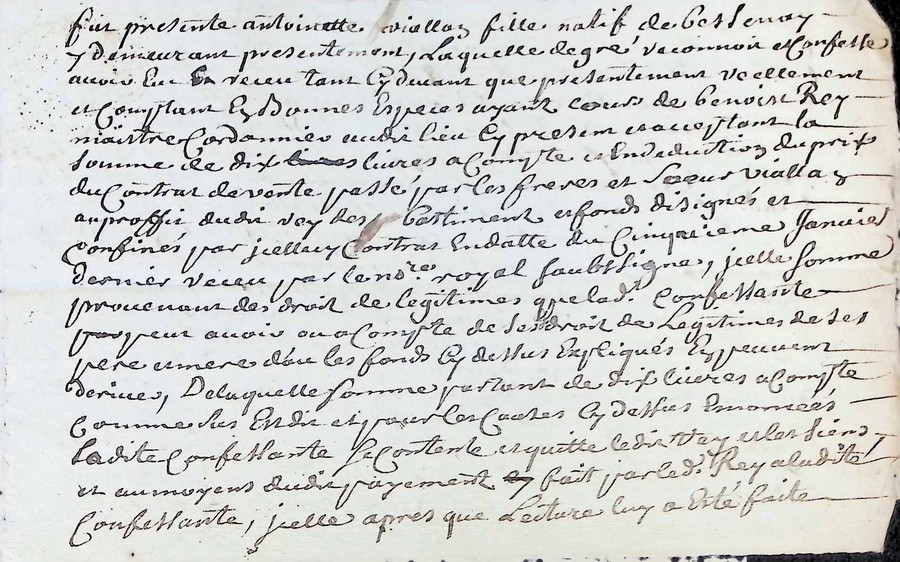 fut presente antoinette viallay fille natif de bessenay
y demeurant presentement, Laquelle de gré reconnoit et Confesse
avoir Eu et receu tant Cy devant que presentement reellement
et Comptant En Bonnes Especes ayant cours de benoist Rey
maistre Cordannier audit lieu Cy present et acceptant la
somme de dix livres a Compte et En deduction du prix
du Contrat de vente passé par les freres et Soeur viallay
au proffit dudit rey des bastiment et fonds disignés et
Confinés par jcelluy Contrat En datte du Cinquieme Janvier
dernier receu par le no.re royal soubssigne, jcelle somme
provenant des droit de legitimes que lad.t Confessante
peut avoir ou a Compte de ses droit de Legitimes de ses
pere et mere d'ou les fonds Cy dessus Expliqués En peuvent
deriver, De laquelle somme partant de dix livres a Compte
Comme sus Est dit et pour les Causes Cy dessus Enoncées
Ladite Confessante Se Contente et quitte ledit Rey et les siens
et au moyens dudit payement fait par led.t Rey a ladite
Confessante, jcelle apres que Lecture luy a Esté faite